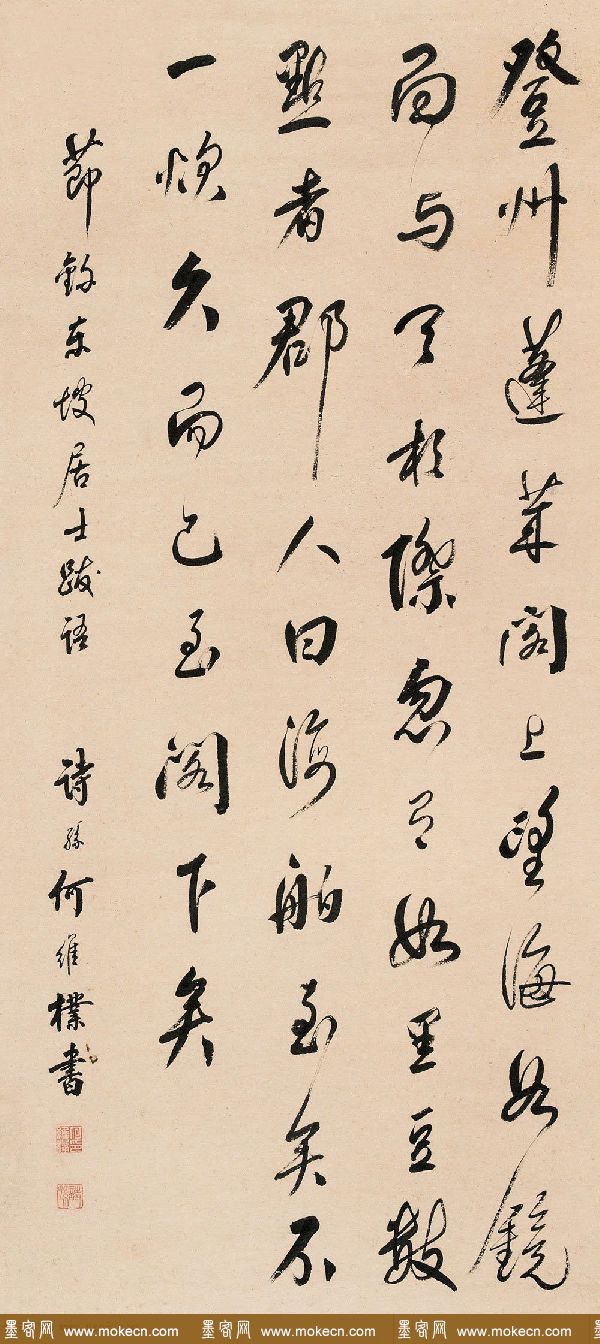 登州蓬萊閣上望海如鏡
面与天相際忽有如黑豆數
點者郡人曰海舶至矣不
一炊久而已至閣下矣
節錄東坡居士跋語 詩孫何維樸書
墨客网 www.mokecn.com 墨客网 www.mokecn.com 墨客网 www.mokecn.com 墨客网 www.mokecn.com